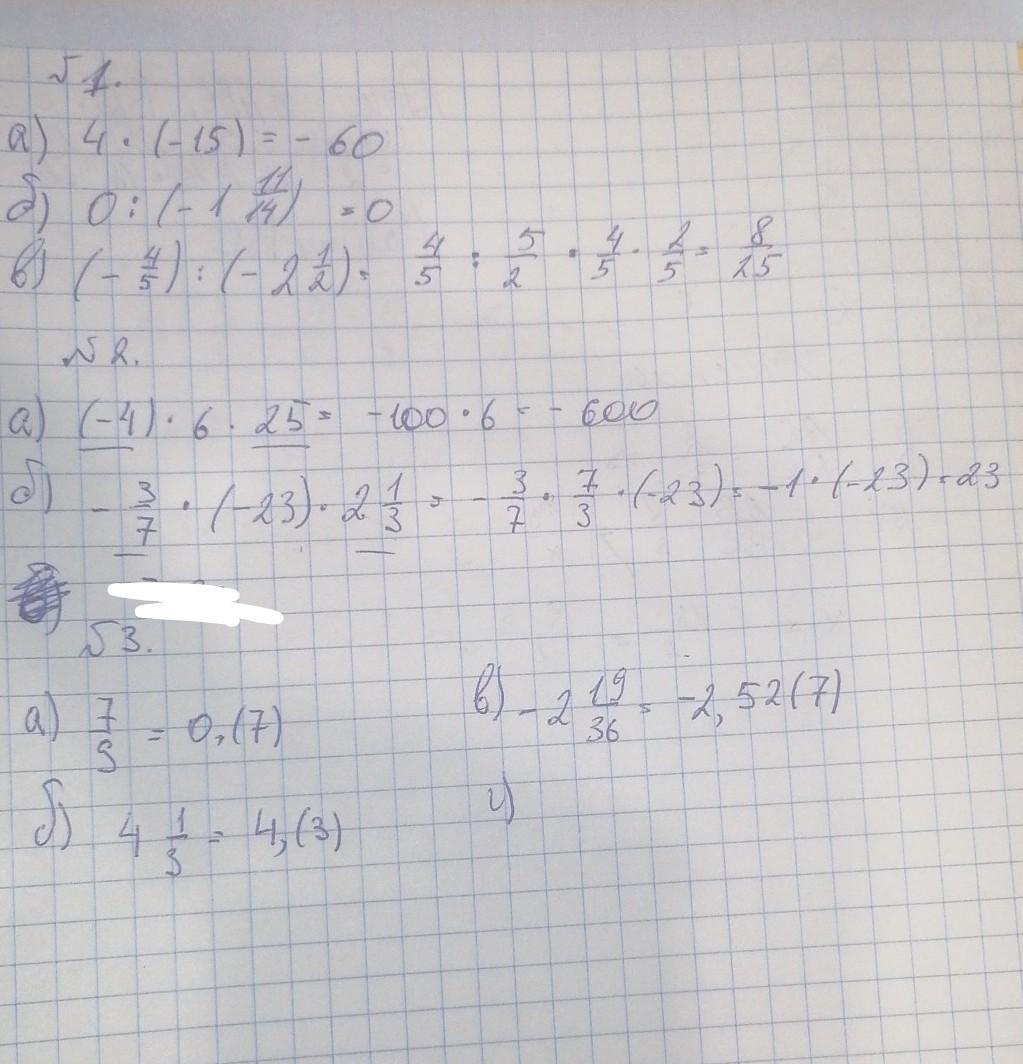 №1.
а) 4 · (-15) = - 60
б) 0 : (-1 11/14) = 0
в) (- 4/5) : (- 2 1/2) = 4/5 : 5/2 = 4/5 · 2/5 = 8/25
№2.
а) (-4) · 6 · 25 = -100 · 6 = - 600
б) - 3/7 · (-23) · 2 1/3 = - 3/7 · 7/3 · (-23) = -1 · (-23) = 23
№3.
а) 7/9 = 0,(7)
б) 4 1/3 = 4,(3)
в) - 2 19/36 = -2,52(7)
г)